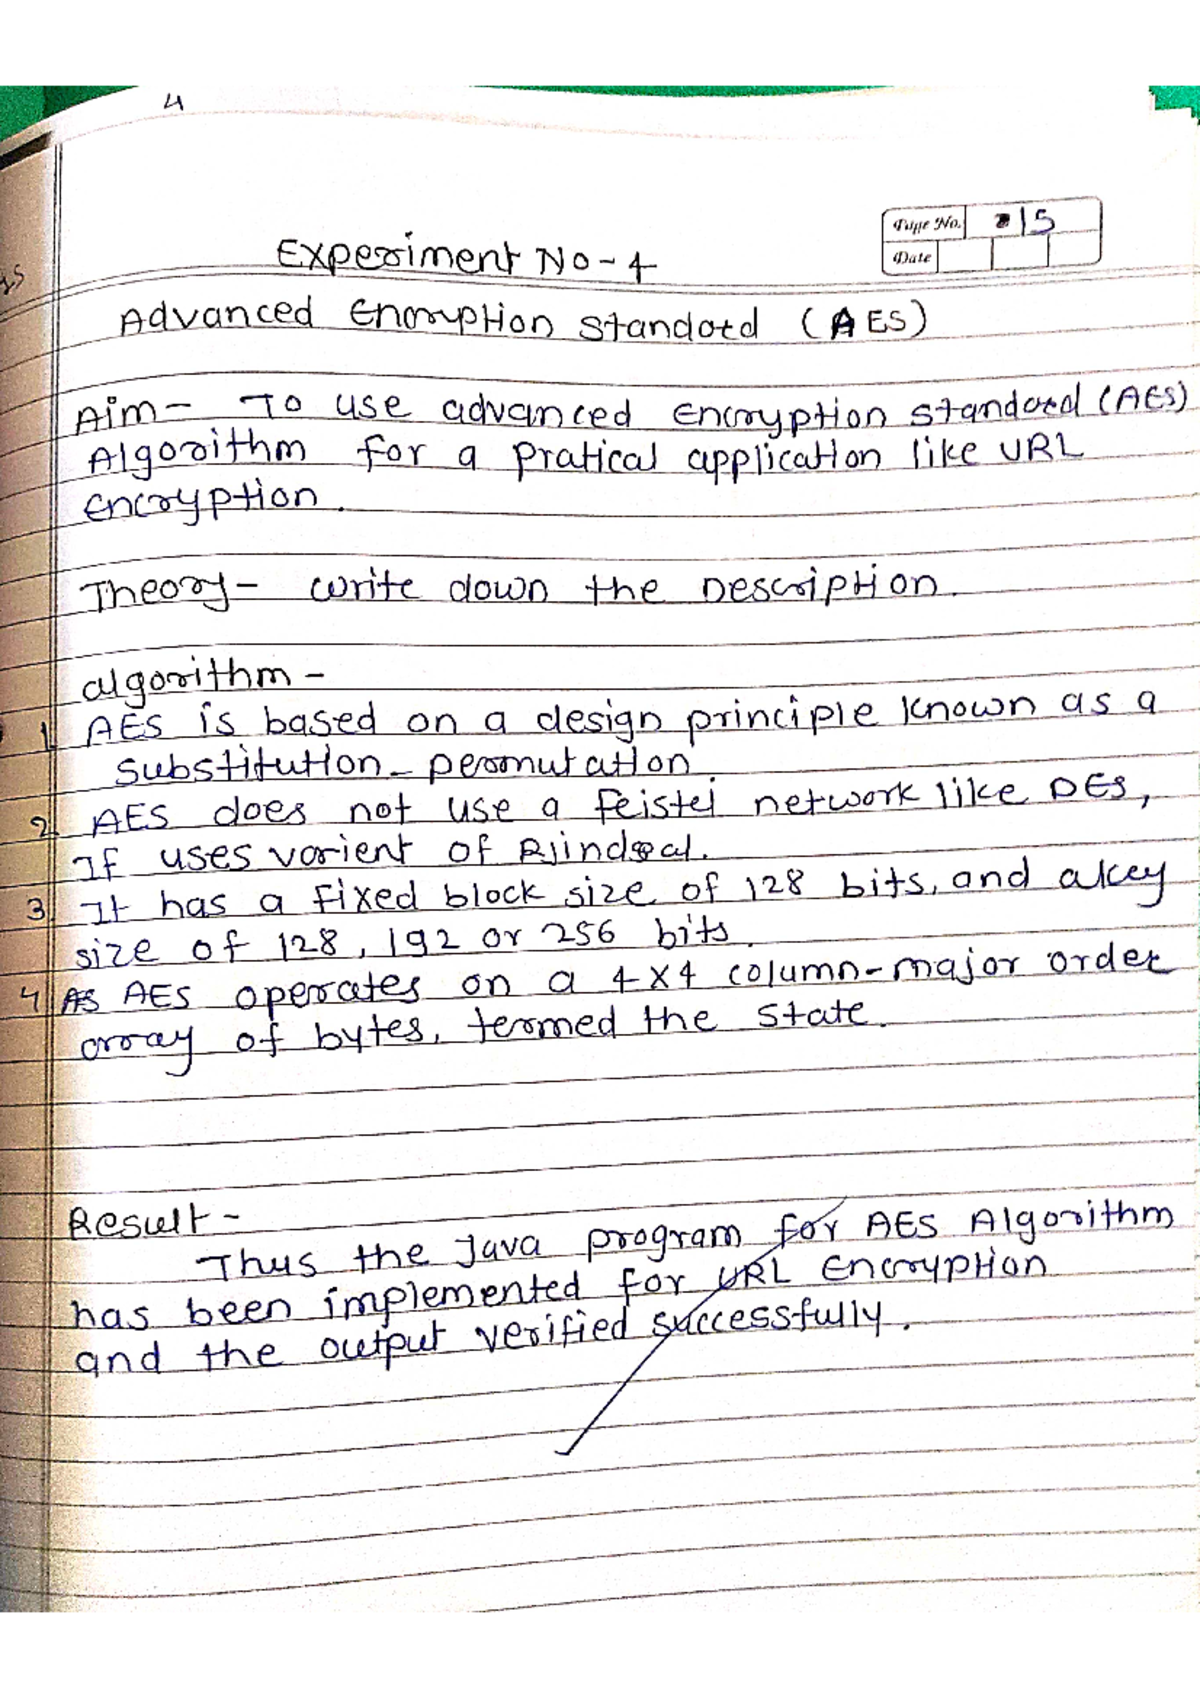 4
Page No. 15
Date
Experiment No - 4
Advanced Encryption Standard (AES)
Aim - To use advanced Encryption Standard (AES)
Algorithm for a pratical application like URL
encryption.
Theory - write down the Description.
algorithm -
1. AES is based on a design principle known as a
substitution - permutation.
2. AES does not use a feistel network like DES,
If uses varient of Rjindoal.
3 It has a fixed block size of 128 bits, and a key
size of 128, 192 or 256 bits.
4 AS AES operates on a 4x4 column-major order
array of bytes, termed the state.
Result -
Thus the Java program for AES Algorithm
has been implemented for URL Encryption
and the output verified successfully.